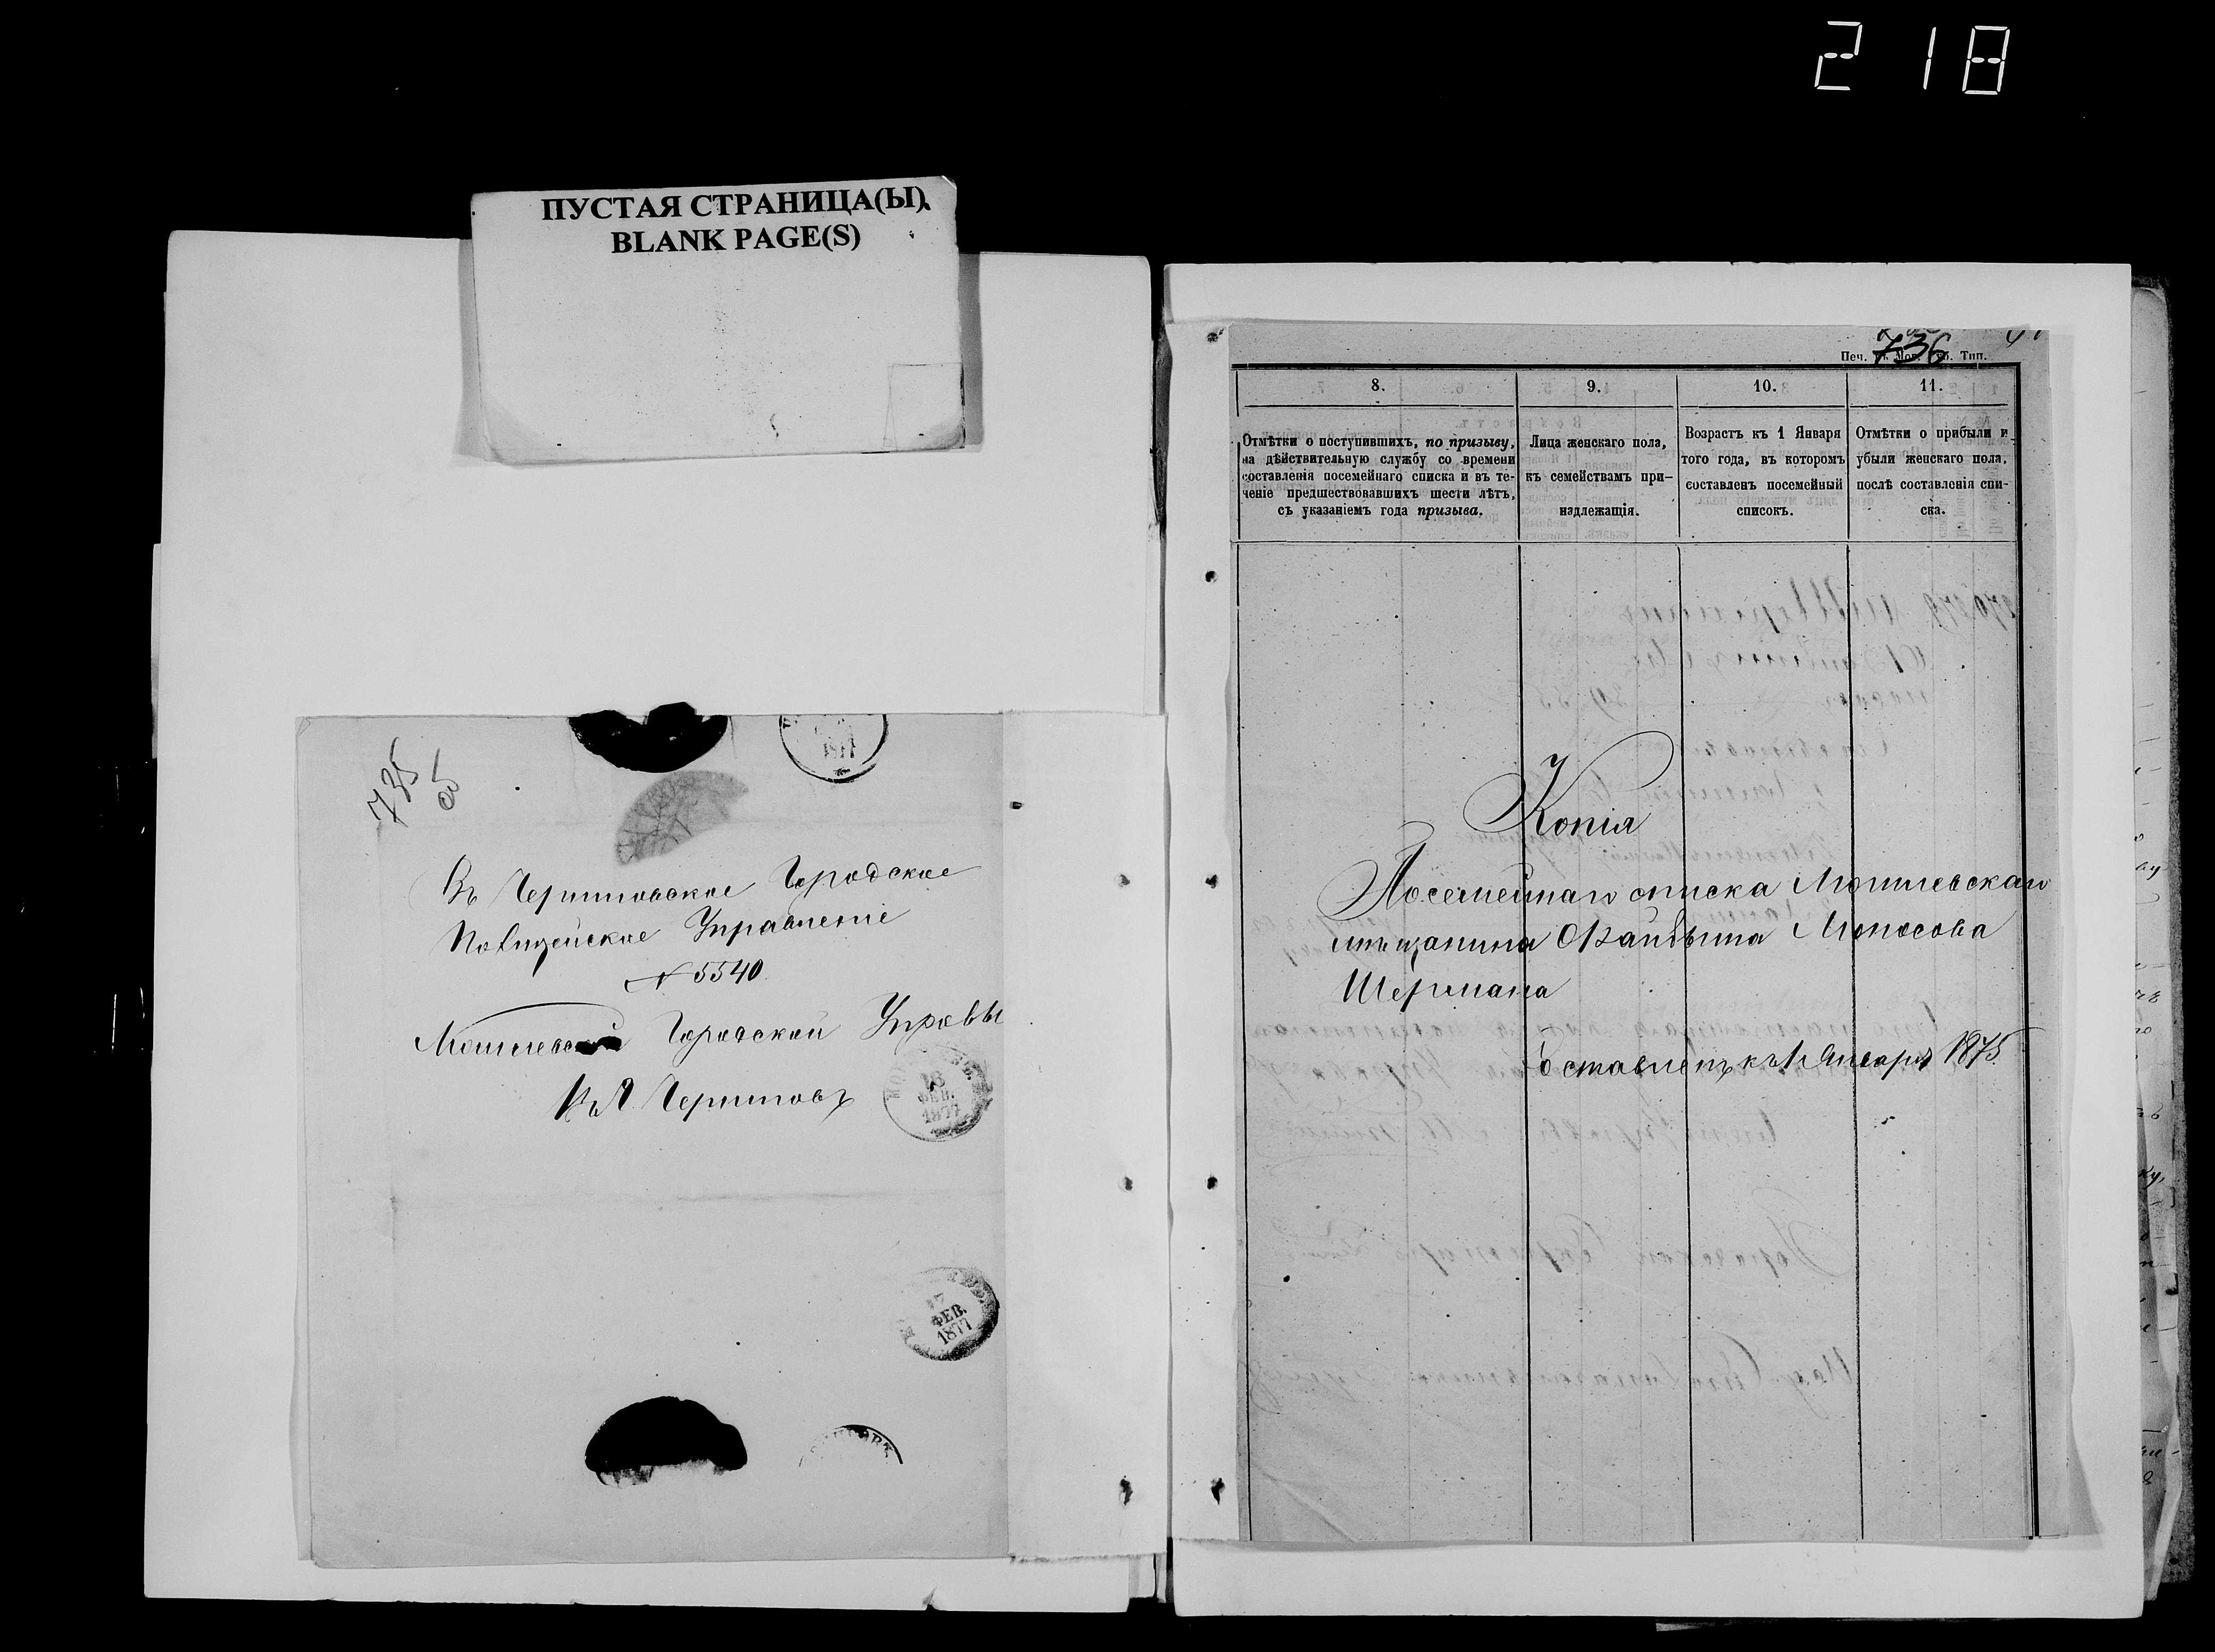 218
ПУСТАЯ СТРАНИЦА(Ы)
BLANK PAGE(S)
735
об
Въ Черниговское Городское
Полицейское Управленіе
№ 5540
Могилевской Городской Управы
Въ Г Черниговъ
18
ФЕВ.
1877
17
ФЕВ.
1877
736
Печ. Мог. Губ. Тип.
8. 9. 10. 11.
Отмѣтки о поступившихъ, по призыву, на дѣйствительную службу со времени составленія посемейнаго списка и въ теченіе предшествовавшихъ шести лѣтъ, съ указаніемъ года призыва.
Лица женскаго пола, къ семействамъ принадлежащія.
Возрастъ къ 1 Января того года, въ которомъ составленъ посемейный списокъ.
Отмѣтки о прибыли и убыли женскаго пола, послѣ составленія списка.
Копія
Посемейнаго списка Могилевскаго
мѣщанина Мовосова
Шермана
Составленъ къ 1 Января 1875